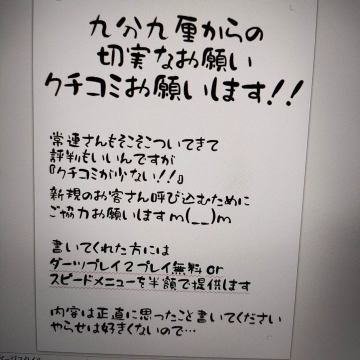 九分九厘からの
切実なお願い
クチコミお願いします!!
常連さんもそこそこついてきて
評判もいいんですが
『クチコミが少ない!!』
新規のお客さん呼び込むために
ご協力お願いしますm(__)m
書いてくれた方には
ダーツプレイ2プレイ無料or
スピードメニューを半額で提供します
内容は正直に思ったこと書いてください
やらせは好きくないので…